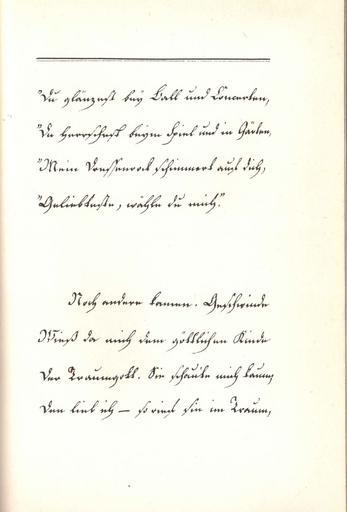 "Du glänzest bey Ball und Concerten,
"Du herrschest beym Spiel und in Gärten,
"Mein Tressenrock schimmert auf dich,
"Geliebteste, wähle du mich".
Noch andere kamen. Geschwinde
Wieß da mich dem göttlichen Kinde
Der Traumgott. Sie schaute mich kaum,
Den lieb ich — so rief sie im Traum,